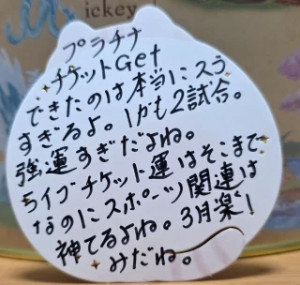 ickey
プラチナ
チケットGet
できたのは本当にスゥ
すぎるよ。しかも2試合。
強運すぎだよね。
ライブチケット運はそこまで
なのにスポーツ関連は
神てるよね。3月楽！
みだね。